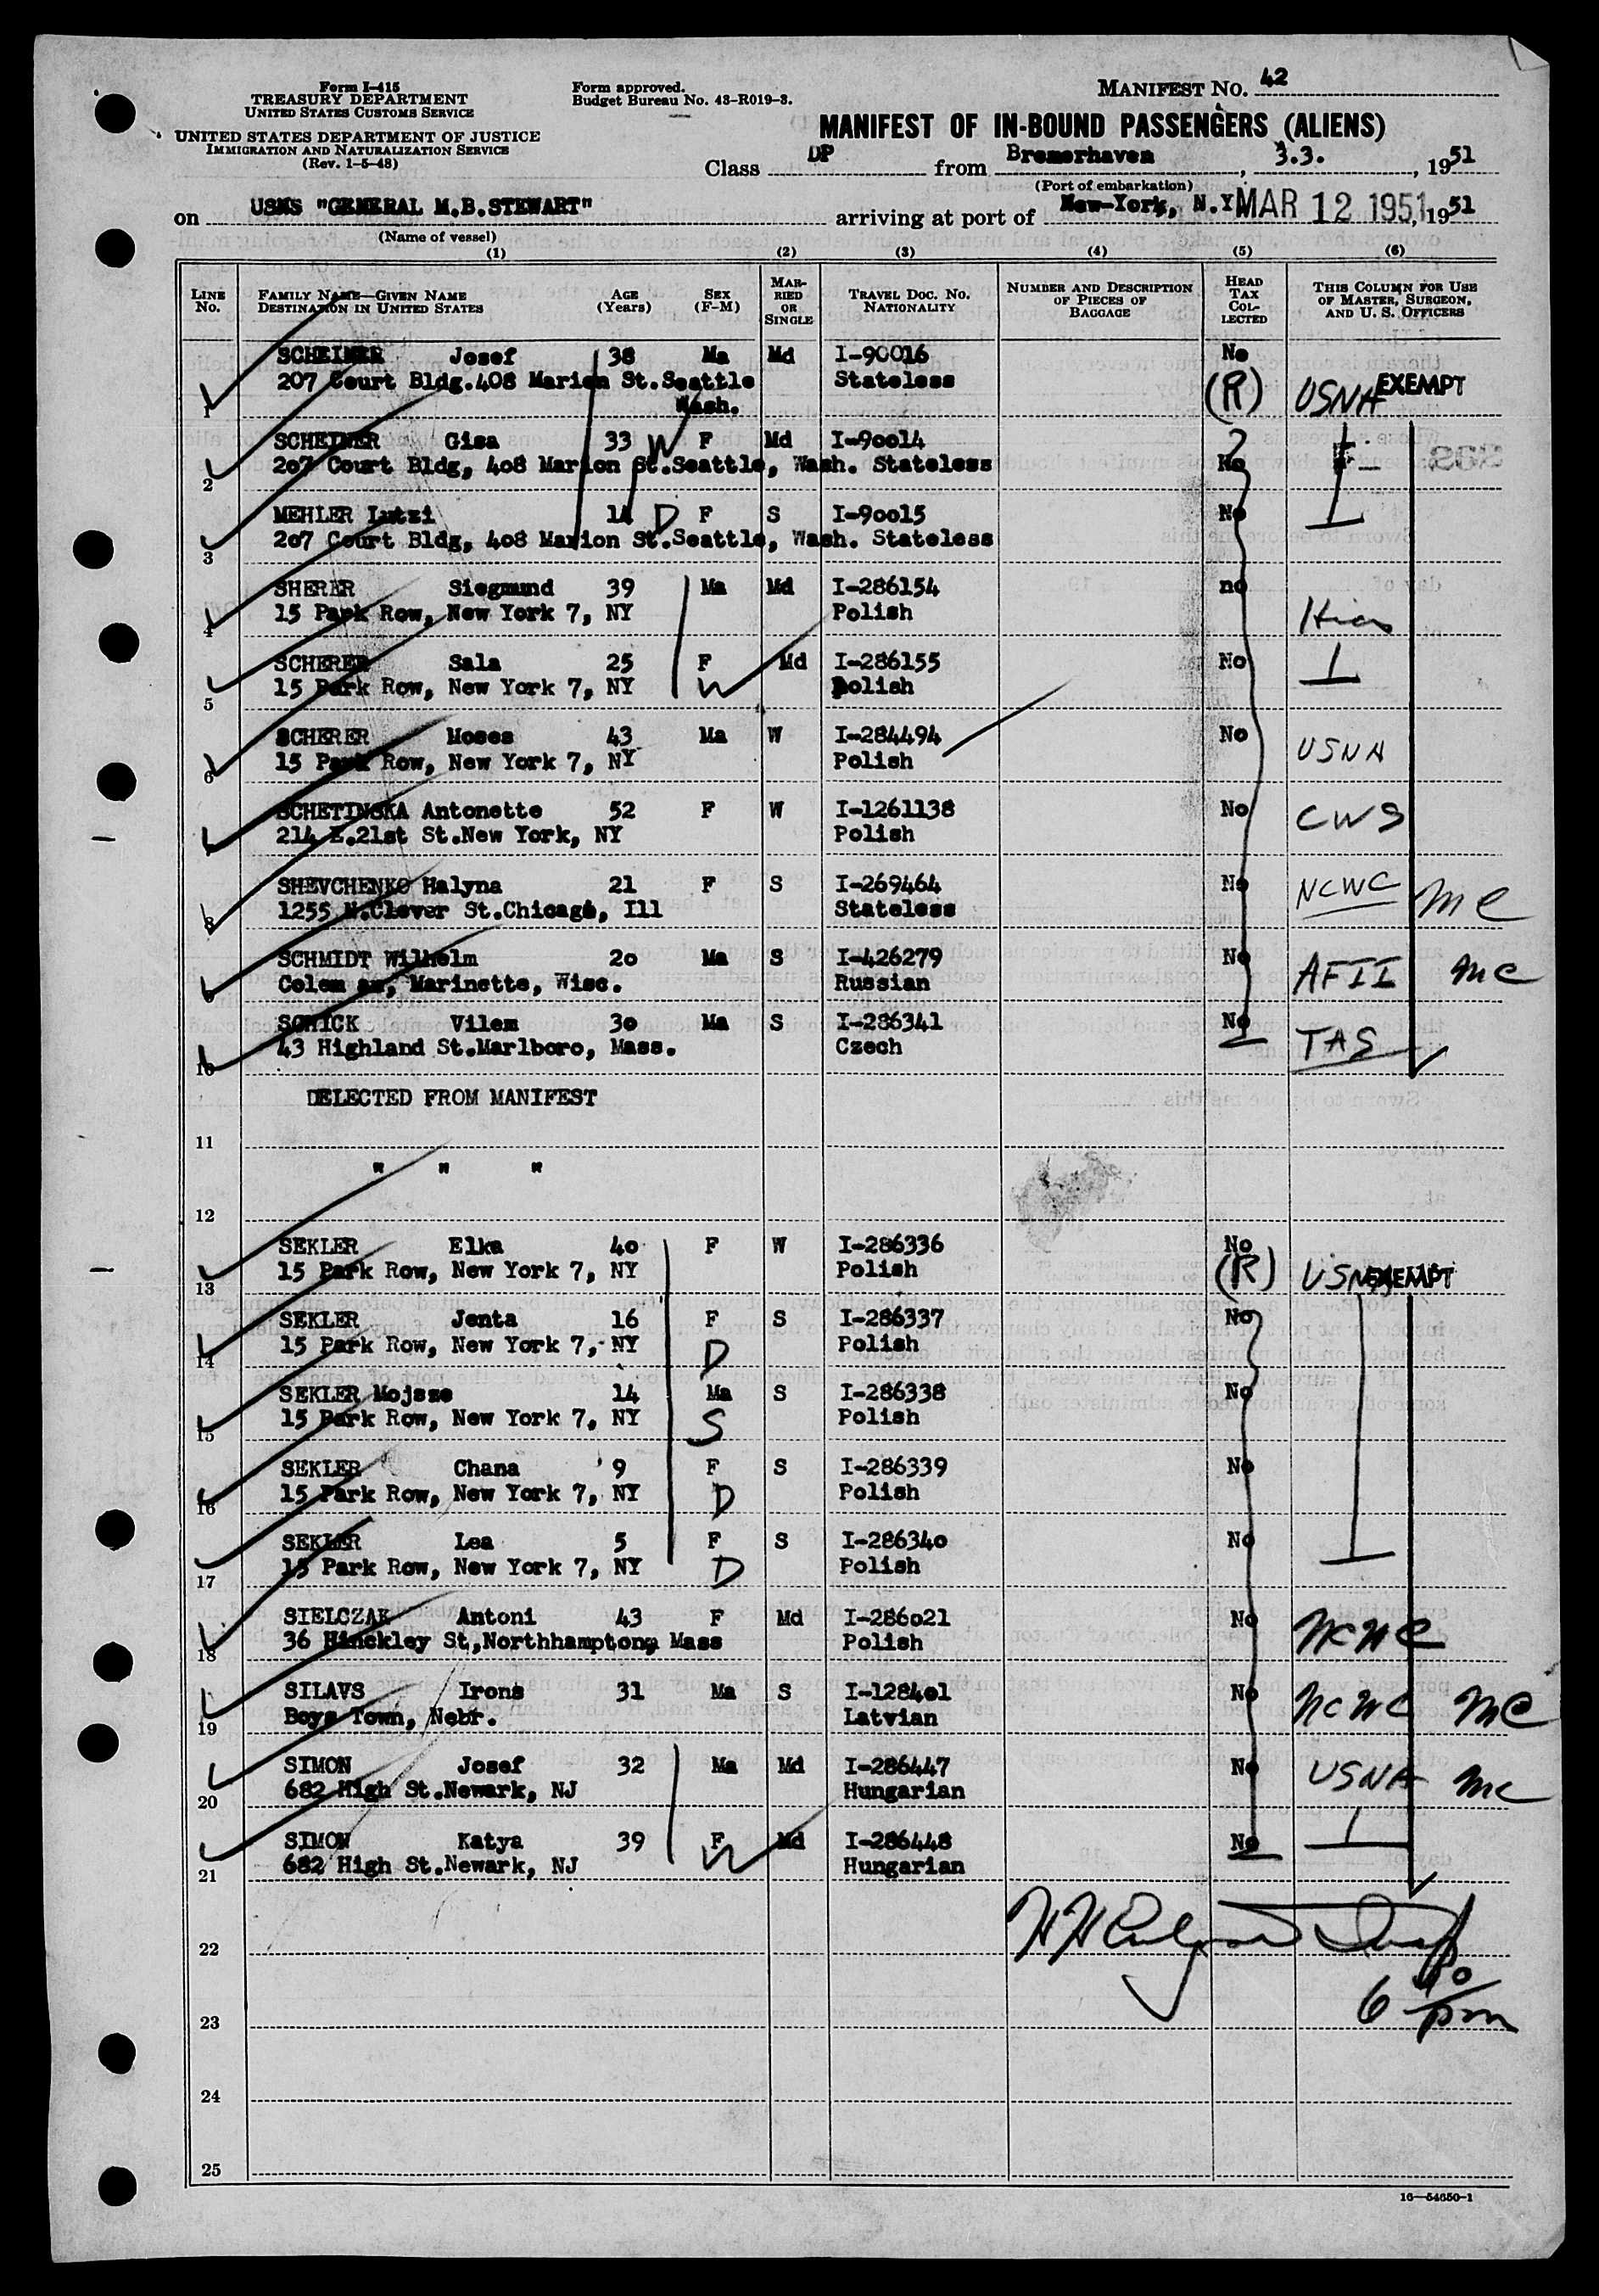 Form I-415
TREASURY DEPARTMENT
UNITED STATES CUSTOMS SERVICE
UNITED STATES DEPARTMENT OF JUSTICE
IMMIGRATION AND NATURALIZATION SERVICE
(Rev. 1-5-48)
Form approved.
Budget Bureau No. 43-R019-3.
MANIFEST NO. 42
MANIFEST OF IN-BOUND PASSENGERS (ALIENS)
Class DP from Bremerhaven, 3.3., 1951
(Port of embarkation)
on USNS "GENERAL M.B.STEWART" arriving at port of New-York, N.Y. MAR 12 1951, 1951
(Name of vessel)
(1) (2) (3) (4) (5) (6)
LINE NO. FAMILY NAME—GIVEN NAME DESTINATION IN UNITED STATES AGE (Years) SEX (F-M) MARRIED OR SINGLE TRAVEL DOC. NO. NATIONALITY NUMBER AND DESCRIPTION OF PIECES OF BAGGAGE HEAD TAX COLLECTED THIS COLUMN FOR USE OF MASTER, SURGEON, AND U. S. OFFICERS
SCHEINER Josef 38 Ma Md I-90016 No
1 207 Court Bldg.408 Marion St.Seattle Stateless (R) USNA EXEMPT
Wash.
SCHEINER Gisa 33 W F Md I-90014
2 207 Court Bldg, 408 Marion St.Seattle, Wash. Stateless No
MEHLER Lutzi 14 D F S I-90015 No
3 207 Court Bldg, 408 Marion St.Seattle, Wash. Stateless
SHERER Siegmund 39 Ma Md I-286154 no
4 15 Park Row, New York 7, NY Polish Hias
SCHERER Sala 25 F Md I-286155 No
5 15 Park Row, New York 7, NY W Polish
SCHERER Moses 43 Ma W I-284494 No
6 15 Park Row, New York 7, NY Polish USNA
SCHETINSKA Antonette 52 F W I-1261138 No CWS
214 E.21st St.New York, NY Polish
SHEVCHENKO Halyna 21 F S I-269464 No NCWC
8 1255 N.Clever St.Chicago, Ill Stateless MC
SCHMIDT Wilhelm 20 Ma S I-426279 No
9 Colem an, Marinette, Wisc. Russian AFII MC
SCHICK Vilem 30 Ma S I-286341 No
10 43 Highland St.Marlboro, Mass. Czech TAS
DELECTED FROM MANIFEST
11
" " "
12
SEKLER Elka 40 F W I-286336 No
13 15 Park Row, New York 7, NY Polish (R) USNA EXEMPT
SEKLER Jenta 16 F S I-286337 No
14 15 Park Row, New York 7, NY D Polish
SEKLER Mojsze 14 Ma S I-286338 No
15 15 Park Row, New York 7, NY S Polish
SEKLER Chana 9 F S I-286339 No
16 15 Park Row, New York 7, NY D Polish
SEKLER Lea 5 F S I-286340 No
17 15 Park Row, New York 7, NY D Polish
SIELCZAK Antoni 43 F Md I-286021 No
18 36 Hinckley St,Northhampton, Mass Polish NCWC
SILAVS Irons 31 Ma S I-128401 No
19 Boys Town, Nebr. Latvian NCWC MC
SIMON Josef 32 Ma Md I-286447 No
20 682 High St.Newark, NJ Hungarian USNA MC
SIMON Katya 39 F Md I-286448 No
21 682 High St.Newark, NJ W Hungarian
22
6 40/pm
23
24
25
16—54650-1